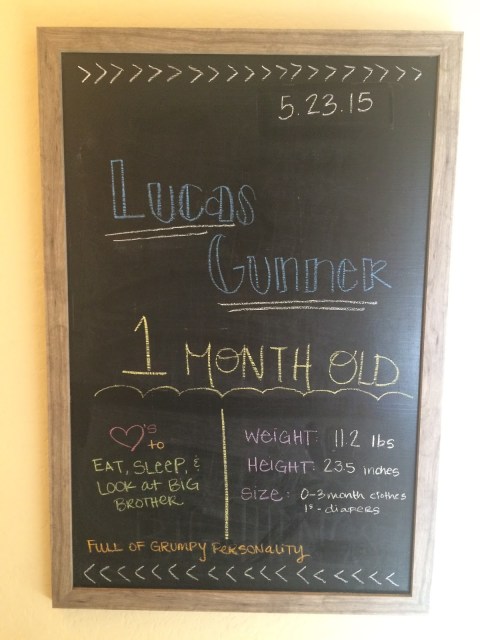 >>>>>>>>>>>>>>>>>>>>>>>>>
5.23.15
Lucas
Gunner
1 MONTH OLD
♡'s
to
EAT, SLEEP, &
LOOK at BIG
BROTHER
WEIGHT: 11.2 lbs
HEIGHT: 23.5 inches
SIZE: 0-3 month clothes
1's - diapers
FULL OF GRUMPY PERSONALITY
<<<<<<<<<<<<<<<<<<<<<